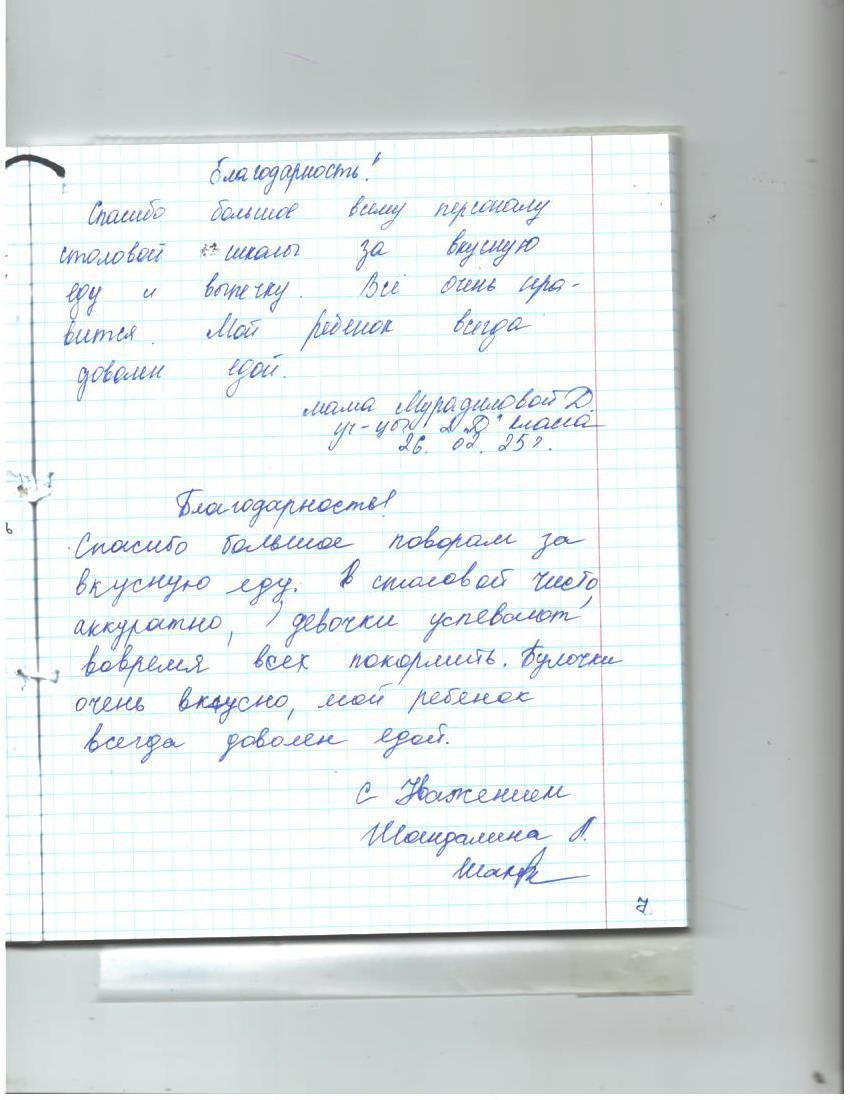 Благодарность!
Спасибо большое всему персоналу
столовой школы за вкусную
еду и выпечку. Всё очень нра-
вится. Мой ребенок всегда
доволен едой.
мама Мурадиловой Д.
уч-цы 2 "Д" класса
26. 02. 25г.
Благодарность!
Спасибо большое поворам за
вкусную еду. В столовой чисто,
аккуратно, девочки успевают
вовремя всех покормить. Булочки
очень вкусно, мой ребенок
всегда доволен едой.
С Уважением
Шандалина Л.
7